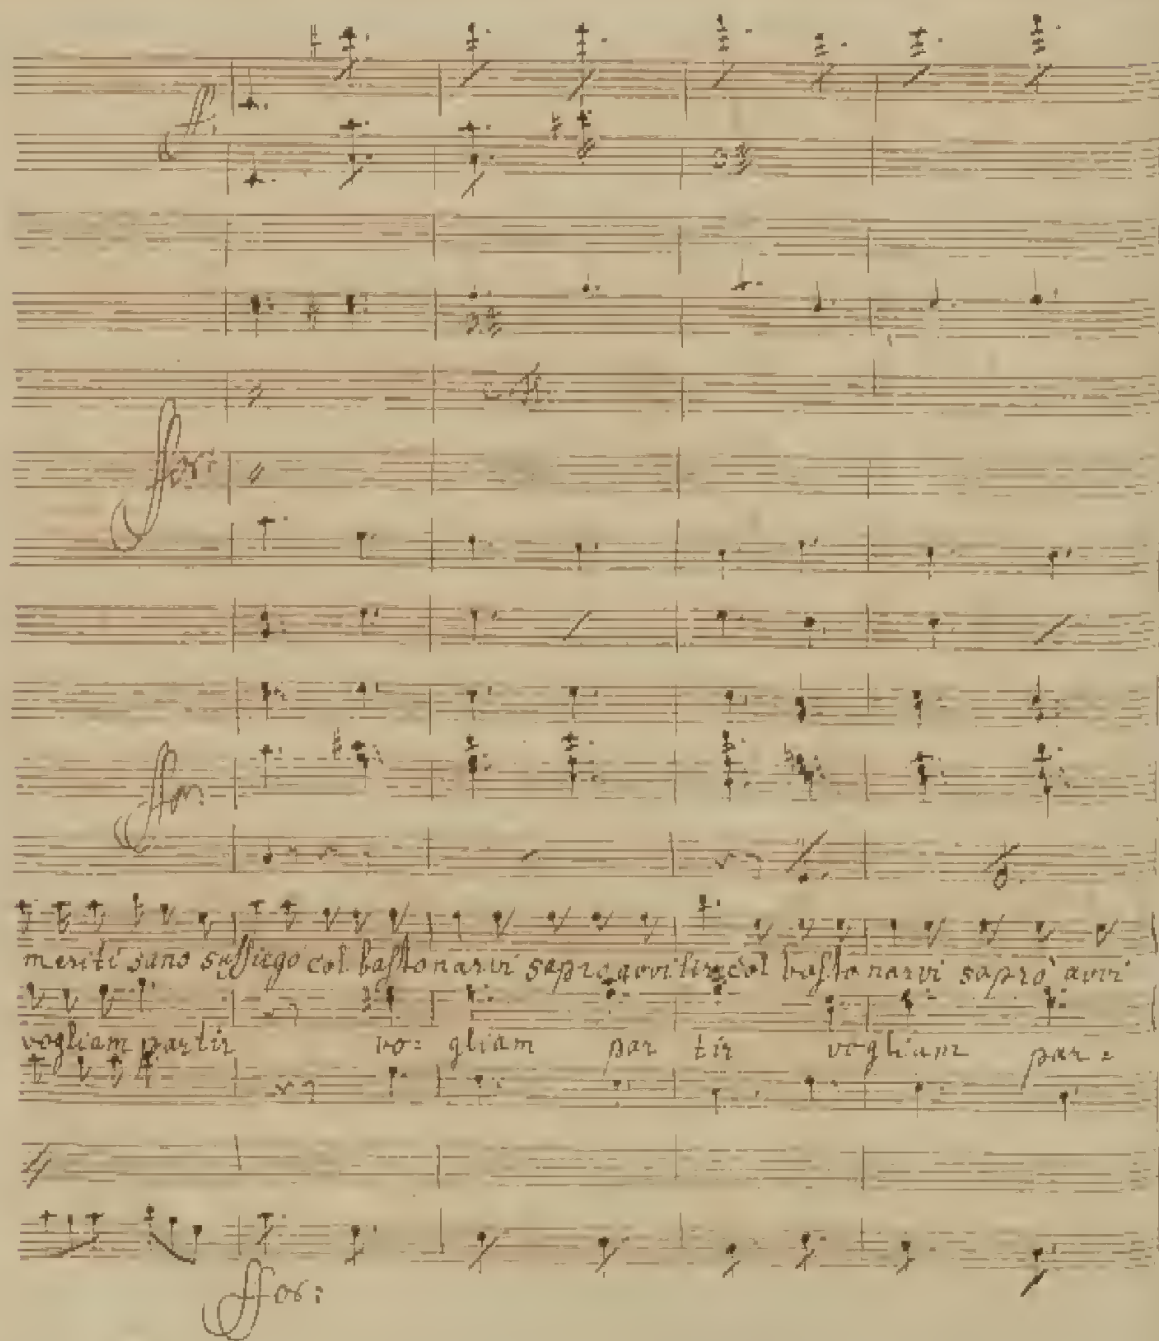 f:
for:
for:
meriti sano sussiego col bastonarvi saprò avvilir col bastonarvi saprò avvi
vogliam partir vo= gliam par tir vogliam par=
ffor: